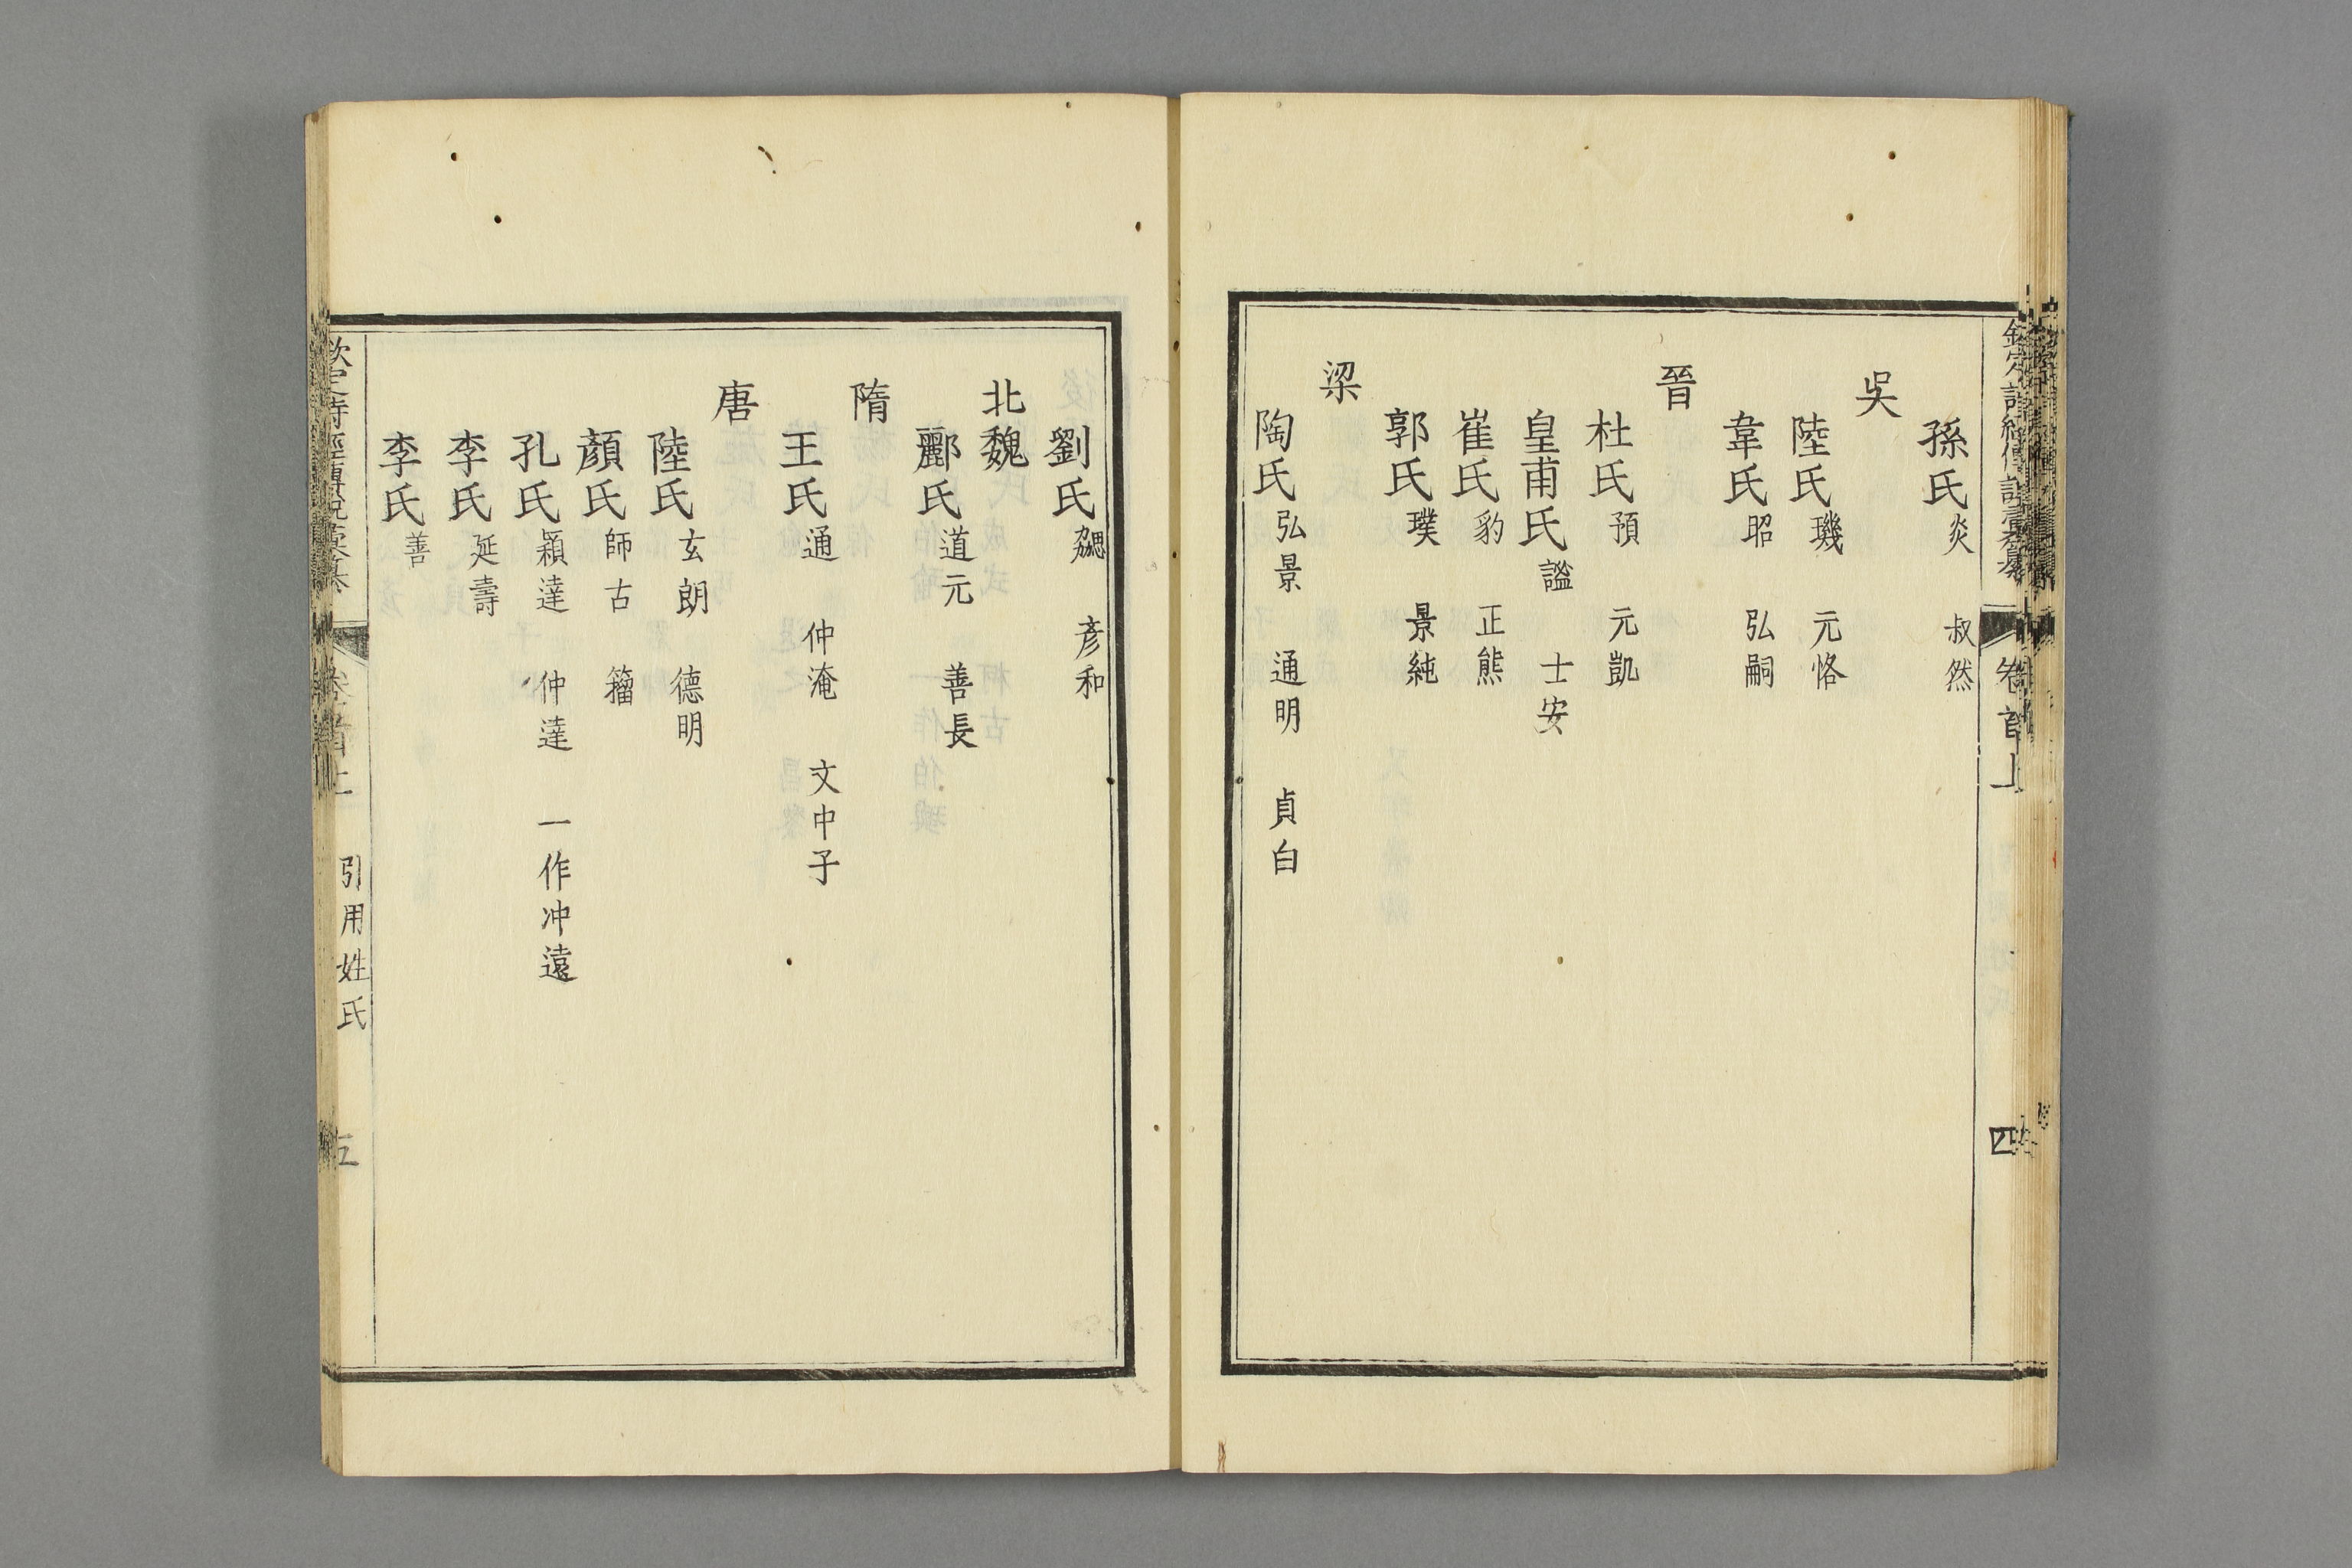 孫氏炎 叔然
吳
陸氏璣 元恪
韋氏昭 弘嗣
晉
杜氏預 元凱
皇甫氏謐 士安
崔氏豹 正熊
郭氏璞 景純
梁
陶氏弘景 通明 貞白
卷首上
四
劉氏勰 彥和
北魏
酈氏道元 善長
隋
王氏通 仲淹 文中子
唐
陸氏玄朗 德明
顏氏師古 籀
孔氏穎達 仲達 一作冲遠
李氏延壽
李氏善
卷首上 引用姓氏 五